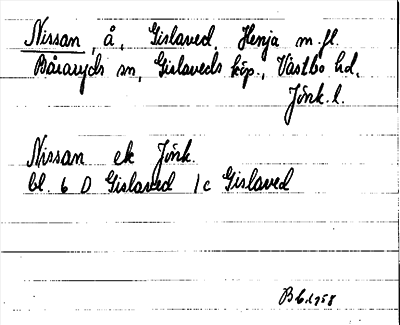 Nissan, å, Gislaved, Henja m.fl.
Båraryds sn, Gislaveds köp., Västbo hd,
Jönk. l.
Nissan ek Jönk.
bl. 6 D Gislaved 1c Gislaved